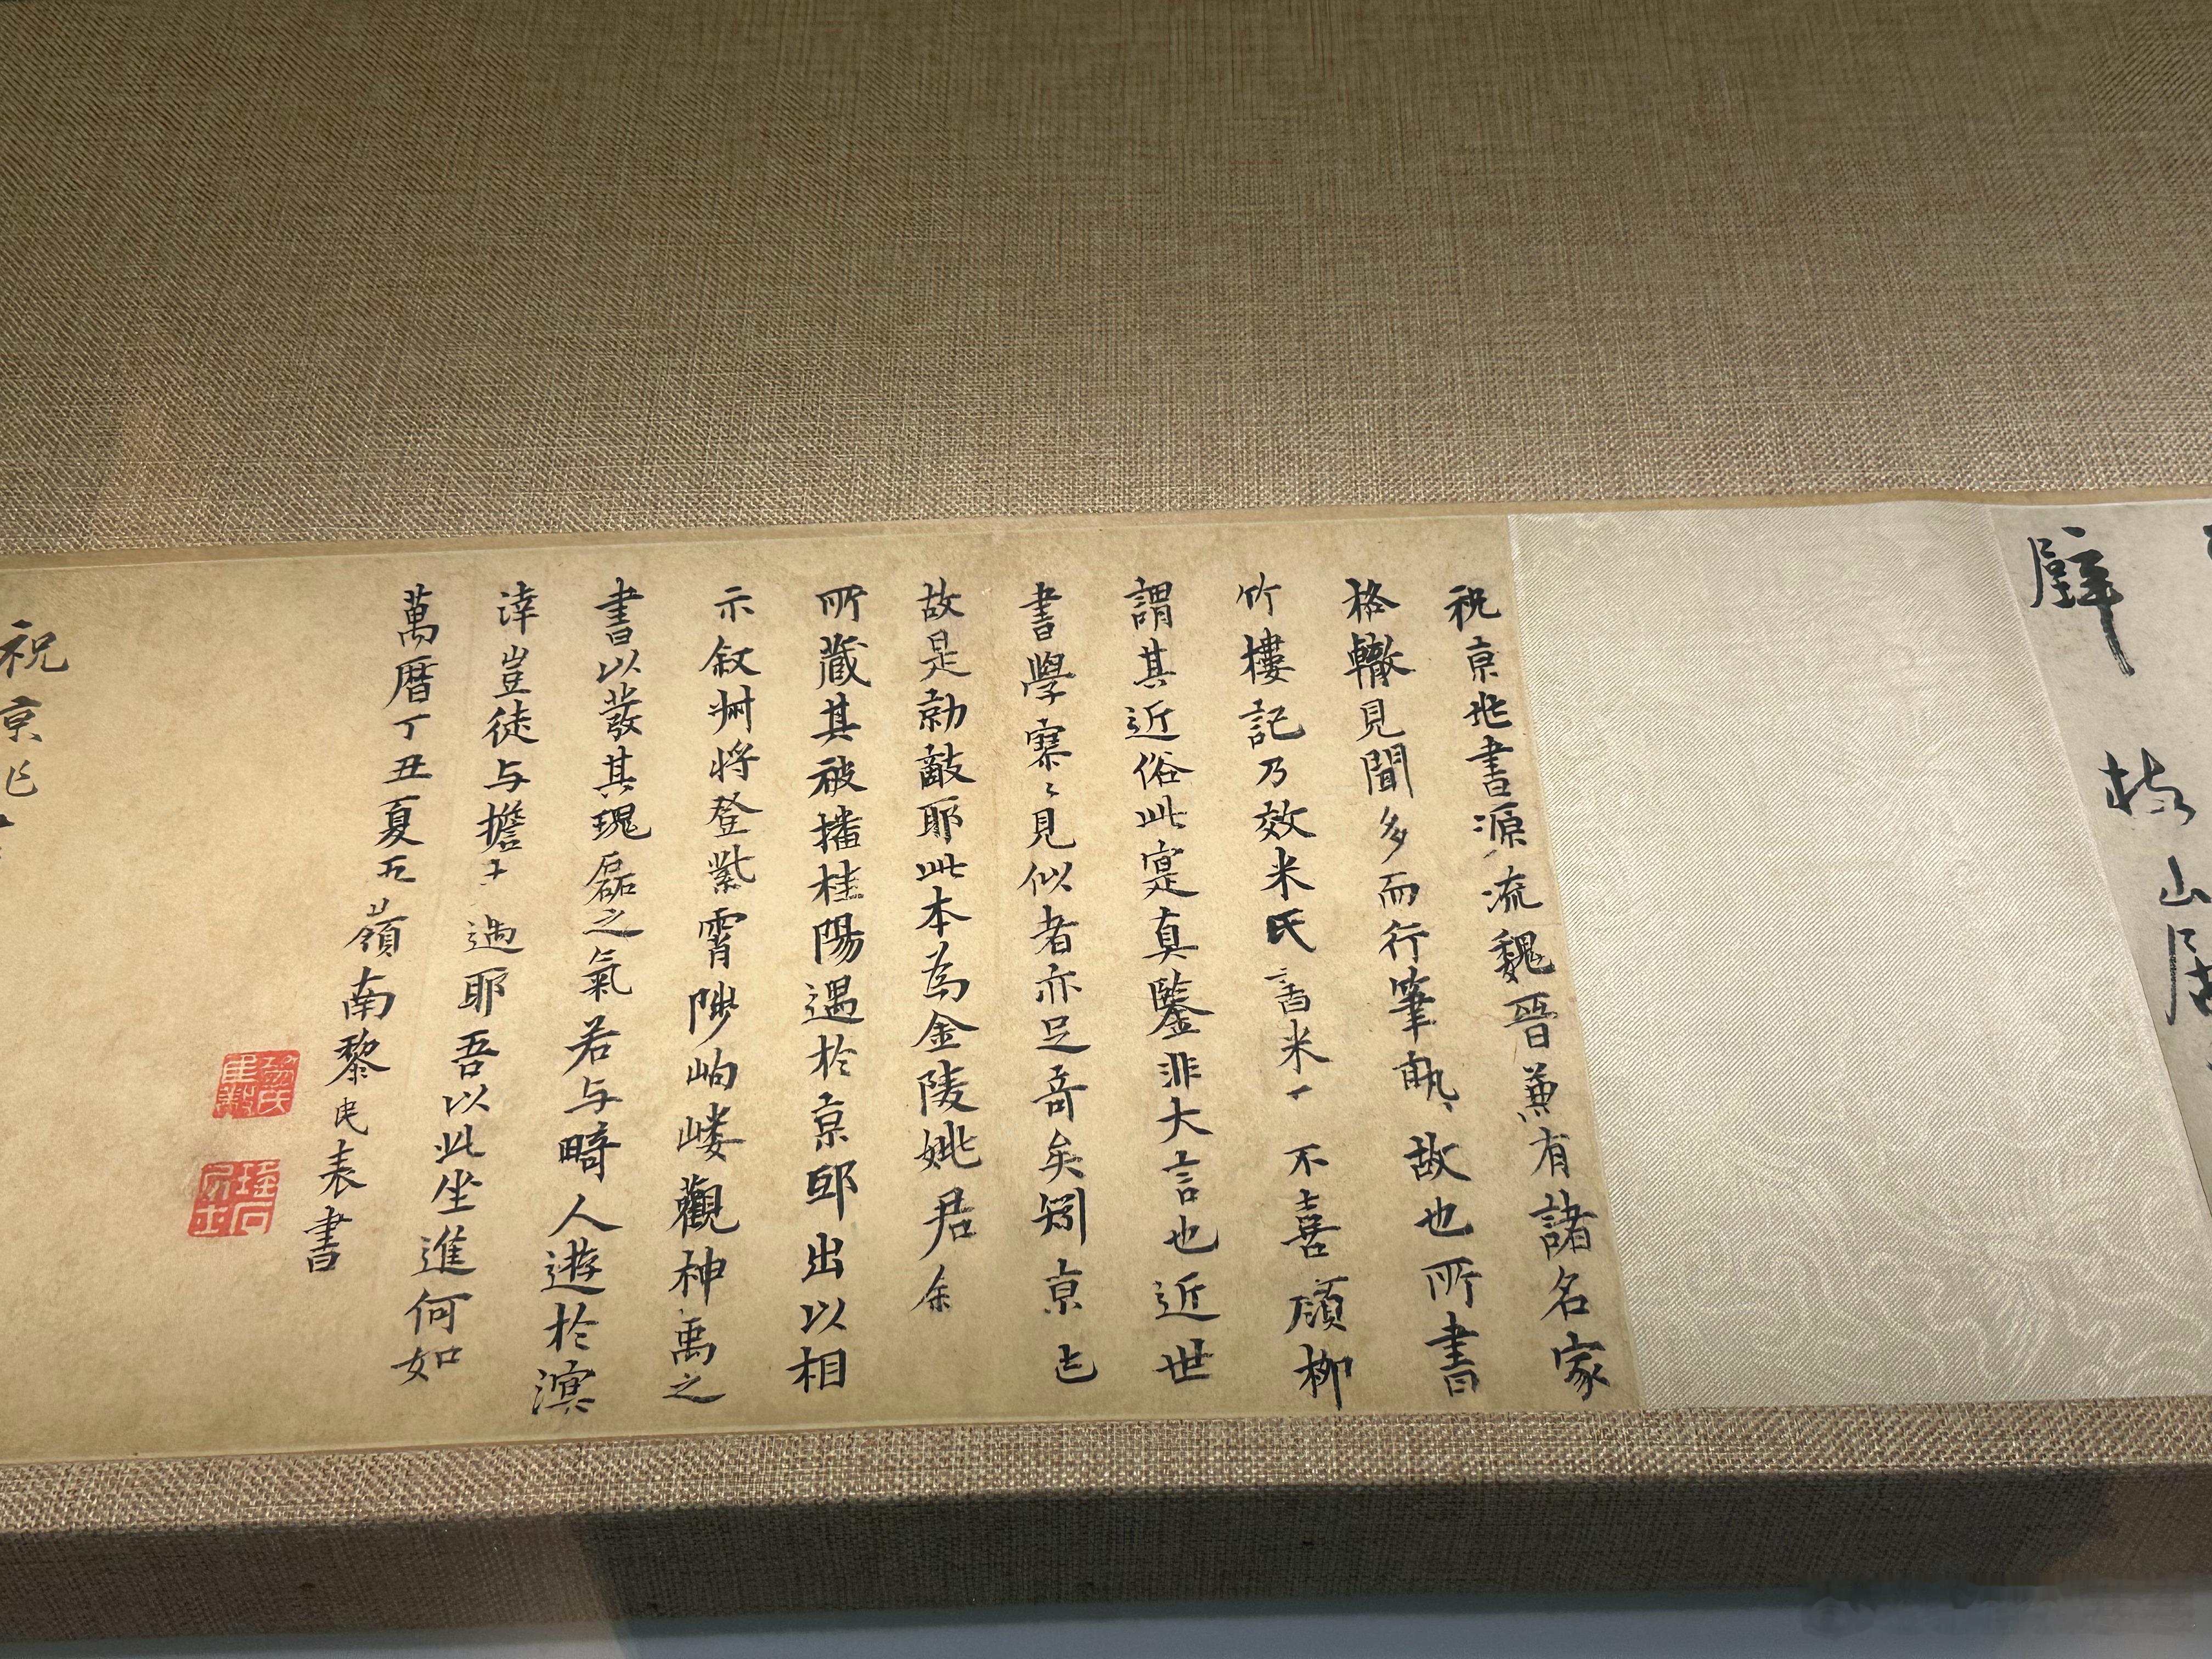 壁
枝山居
祝京兆書源流魏晉兼有諸名家
格轍見聞多而行筆執故也所書
竹樓記乃效米氏書米 不喜顔柳
謂其近俗此寔真鑒非大言也近世
書學寥〻見似者亦足奇矣矧京
故是勍敵耶此本為金陵姚君余
所藏其被播桂陽遇於京邸出以相
示叙州將登紫霄陟岣嶁觀神禹之
書以發其瑰磊之氣若与畸人遊於溟
涬豈徒与擔 過耶吾以此坐進何如
萬曆丁丑夏五嶺南黎民表書
祝京